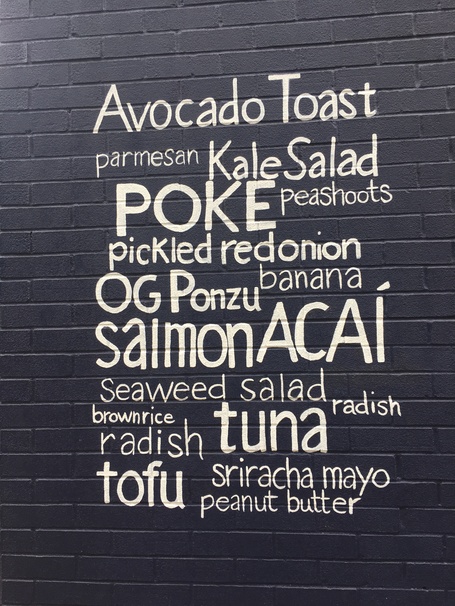 Avocado Toast
parmesan Kale Salad
POKE peashoots
pickled red onion
OG Ponzu banana
salmon ACAÍ
seaweed salad
brownrice tuna radish
radish
tofu sriracha mayo
peanut butter